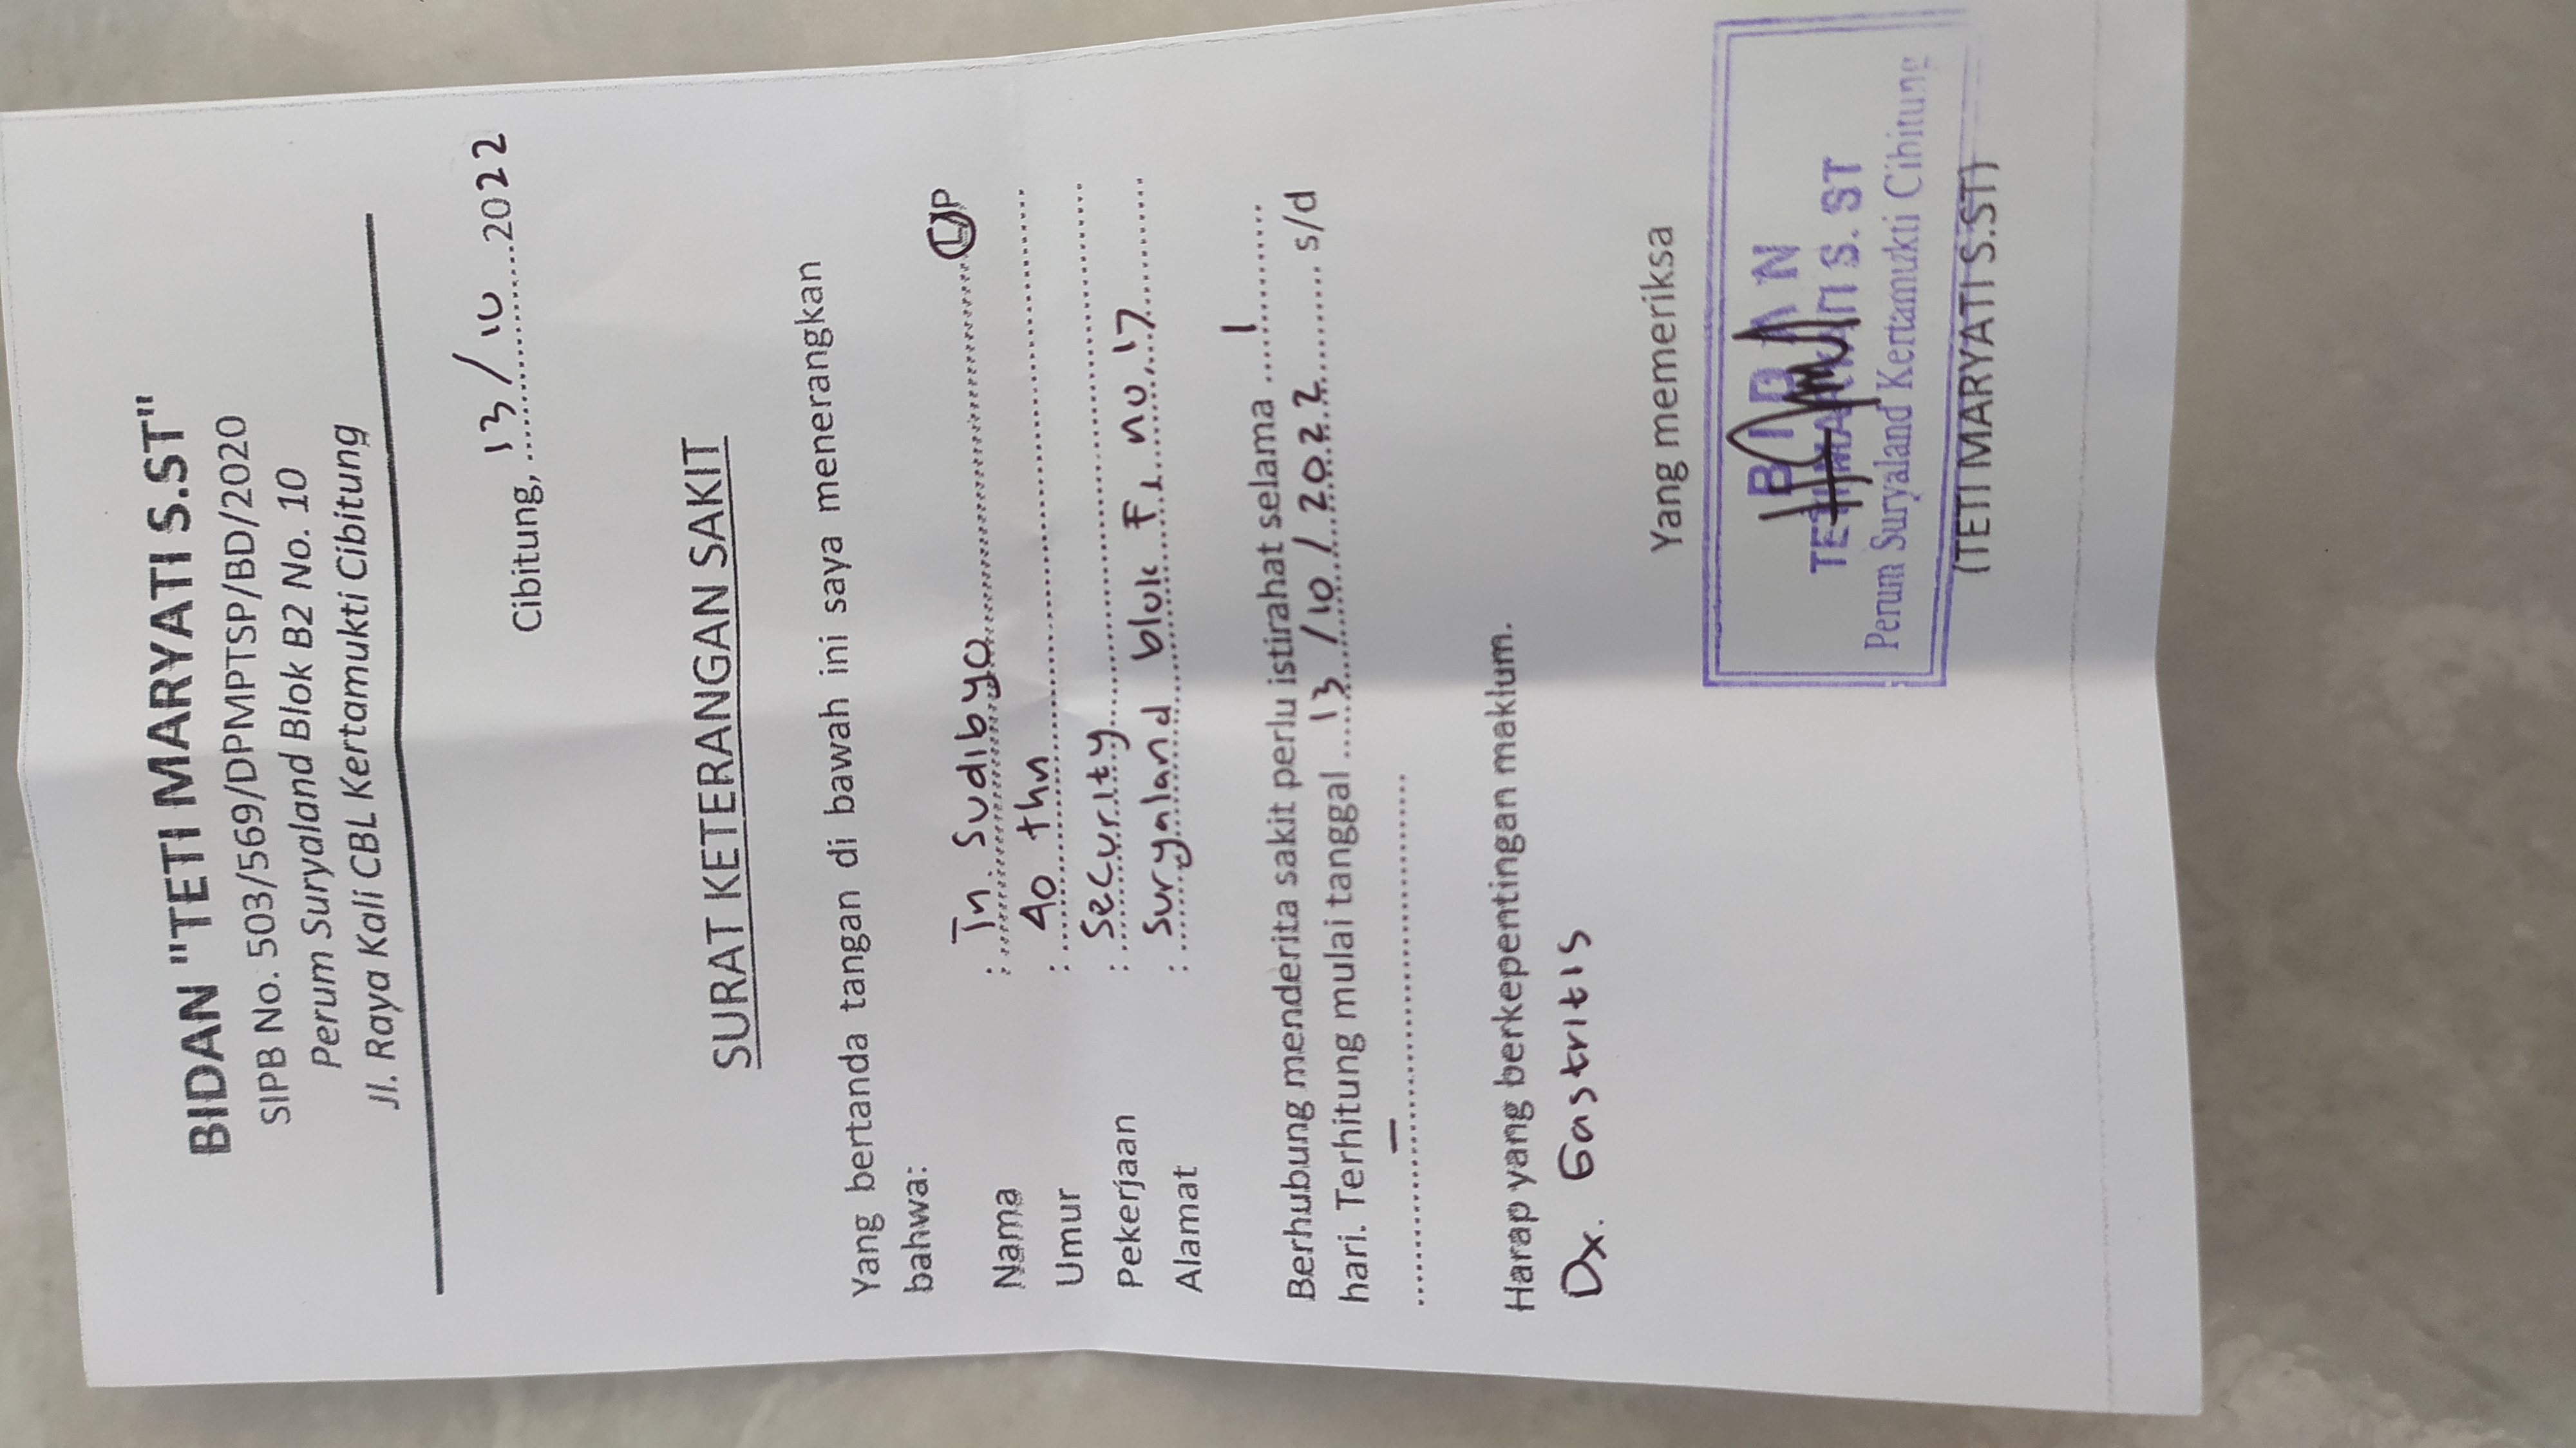 BIDAN "TETI MARYATI S.ST"
SIPB No. 503/569/DPMPTSP/BD/2020
Perum Suryaland Blok B2 No. 10
Jl. Raya Kali CBL Kertamukti Cibitung
Cibitung, 13/10 2022
SURAT KETERANGAN SAKIT
Yang bertanda tangan di bawah ini saya menerangkan
bahwa:
Nama : Tn. Sudibyo L/P
Umur : 40 thn
Pekerjaan : Security
Alamat : Suryaland blok F1 no. 17
Berhubung menderita sakit perlu istirahat selama 1
hari. Terhitung mulai tanggal 13/10/2022 s/d
–
Harap yang berkepentingan maklum.
Dx. Gastritis
Yang memeriksa
BIDAN
TETI MARYATI S. ST
Perum Suryaland Kertamukti Cibitung
(TETI MARYATI S.ST)